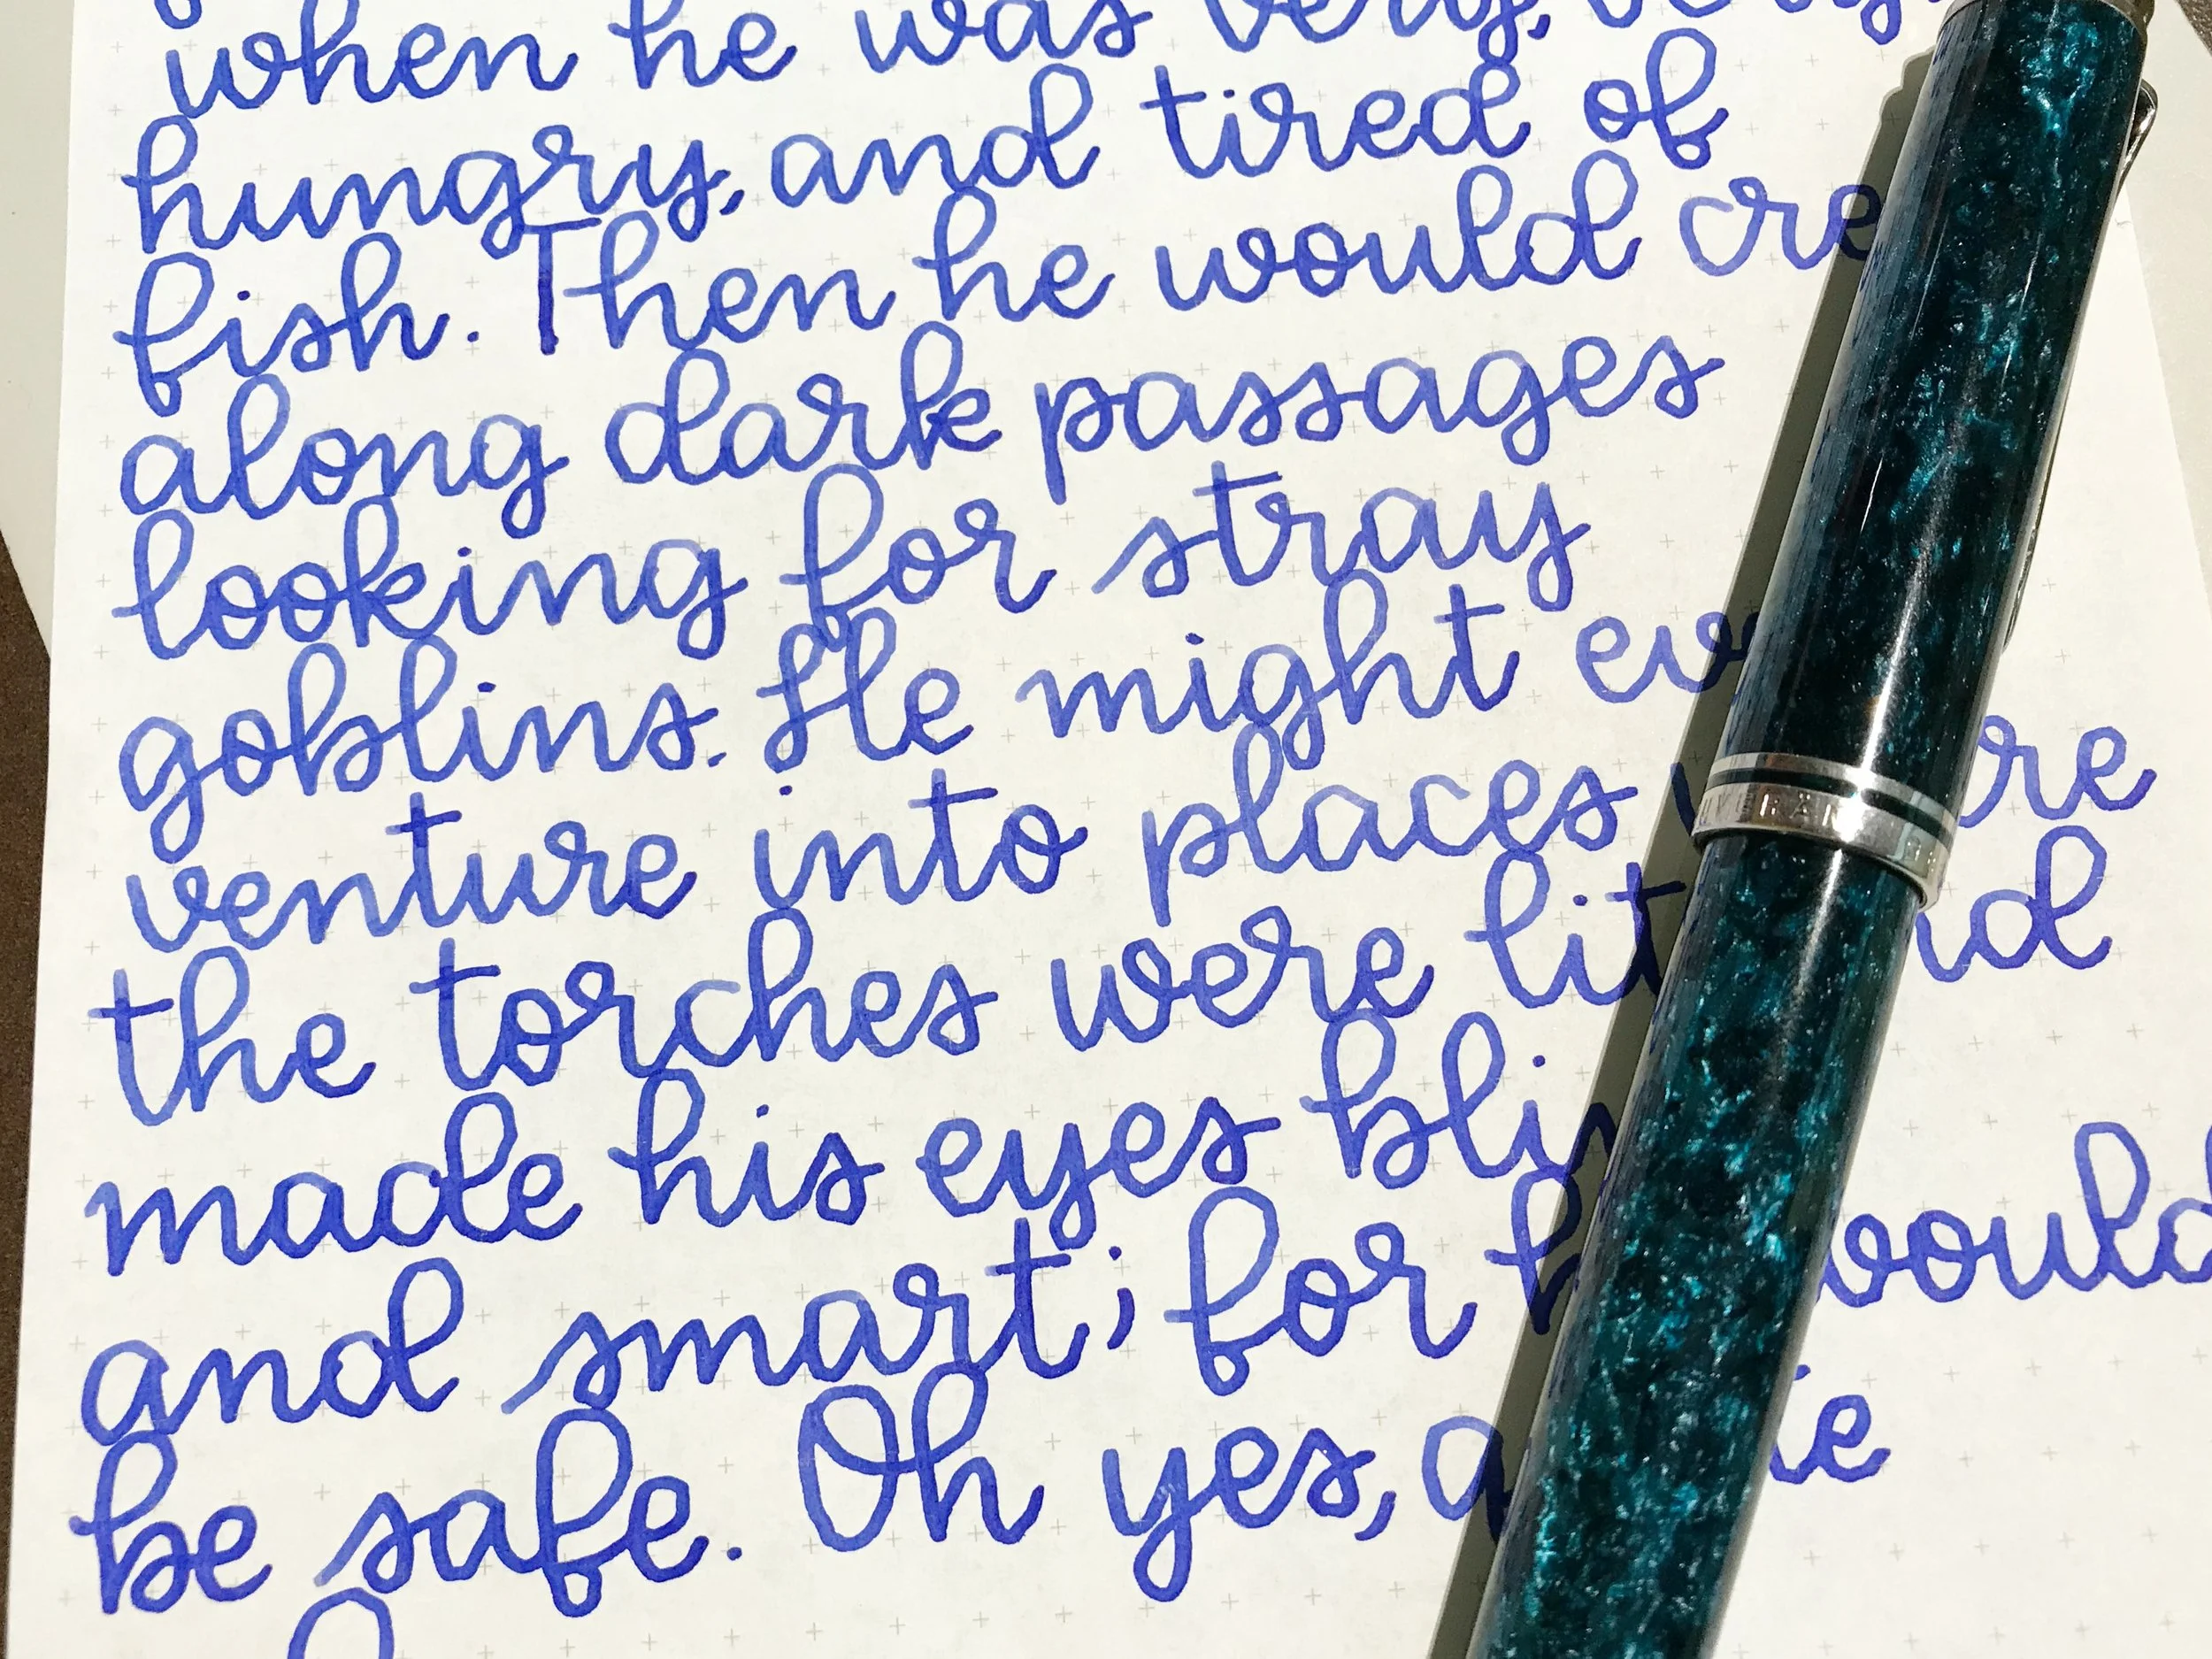 when he was very, very
hungry, and tired of
fish. Then he would cre
along dark passages
looking for stray
goblins. He might ev
venture into places re
the torches were lit nd
made his eyes bli
and smart; for h would
be safe. Oh yes, a ie